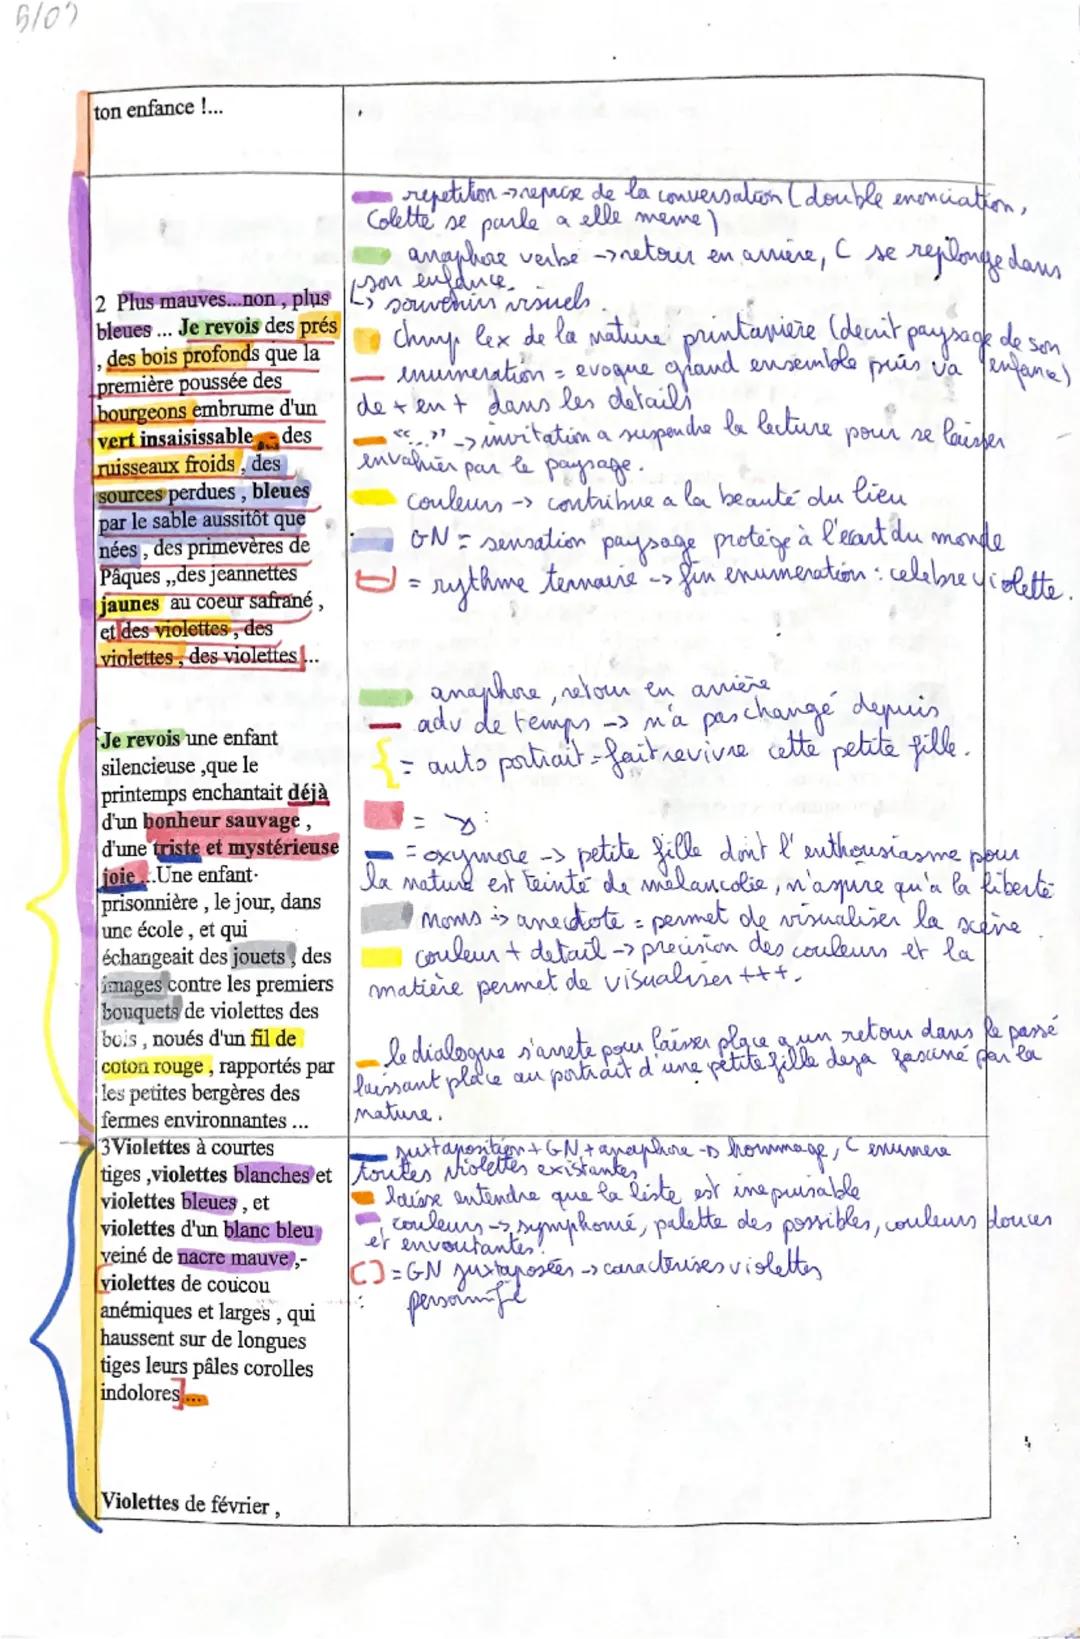 5/07
ton enfance !...
2 Plus mauves...non , plus
bleues ... Je revois des prés
, des bois profonds que la
première poussée des
bourgeons embrume d'un
vert insaisissable - des
ruisseaux froids , des
sources perdues , bleues
par le sable aussitôt que
nées , des primevères de
Pâques ,,des jeannettes
jaunes au coeur safrané ,
et des violettes , des
violettes , des violettes ...
Je revois une enfant
silencieuse ,que le
printemps enchantait déjà
d'un bonheur sauvage ,
d'une triste et mystérieuse
joie ...Une enfant
prisonnière , le jour, dans
une école , et qui
échangeait des jouets , des
images contre les premiers
bouquets de violettes des
bois , noués d'un fil de
coton rouge , rapportés par
les petites bergères des
fermes environnantes ...
3Violettes à courtes
tiges ,violettes blanches et
violettes bleues , et
violettes d'un blanc bleu
veiné de nacre mauve ,-
violettes de coucou
anémiques et larges , qui
haussent sur de longues
tiges leurs pâles corolles
indolores]...
Violettes de février ,
repetition → reprise de la conversation (double enonciation,
Colette se parle a elle meme)
anaphore verbe → retour en arrière, C se replonge dans
son enfance.
↳ souvenirs visuels.
Chmp lex de la nature printanière (decrit paysage de son
enfance)
enumeration = evoque grand ensemble puis va
de + en + dans les details
"..." → invitation a suspendre la lecture pour se laisser
envahir par le paysage.
couleurs → contribue a la beauté du lieu
GN = sensation paysage protégé à l'écart du monde
= rythme ternaire → fin enumeration : celebre violette.
anaphore, retour en arrière
adv de temps → n'a pas changé depuis
{ = auto portrait = fait revivre cette petite fille.
= :
= oxymore → petite fille dont l'enthousiasme pour
la nature est teinté de mélancolie, n'aspire qu'a la liberté
noms → anecdote = permet de visualiser la scène.
couleur + detail → precision des couleurs et la
matière permet de visualiser +++.
le dialogue s'arrete pour laisser place a un retour dans le passé
laissant place au portrait d'une petite fille deja fasciné par la
nature.
juxtaposition + GN + anaphore → hommage, C enumere
toutes violettes existantes
laisse entendre que la liste est inepuisable
couleurs → symphonie, palette des possibles, couleurs douces
et envoutantes.
[] = GN juxtaposées → caracterises violettes
personnifie